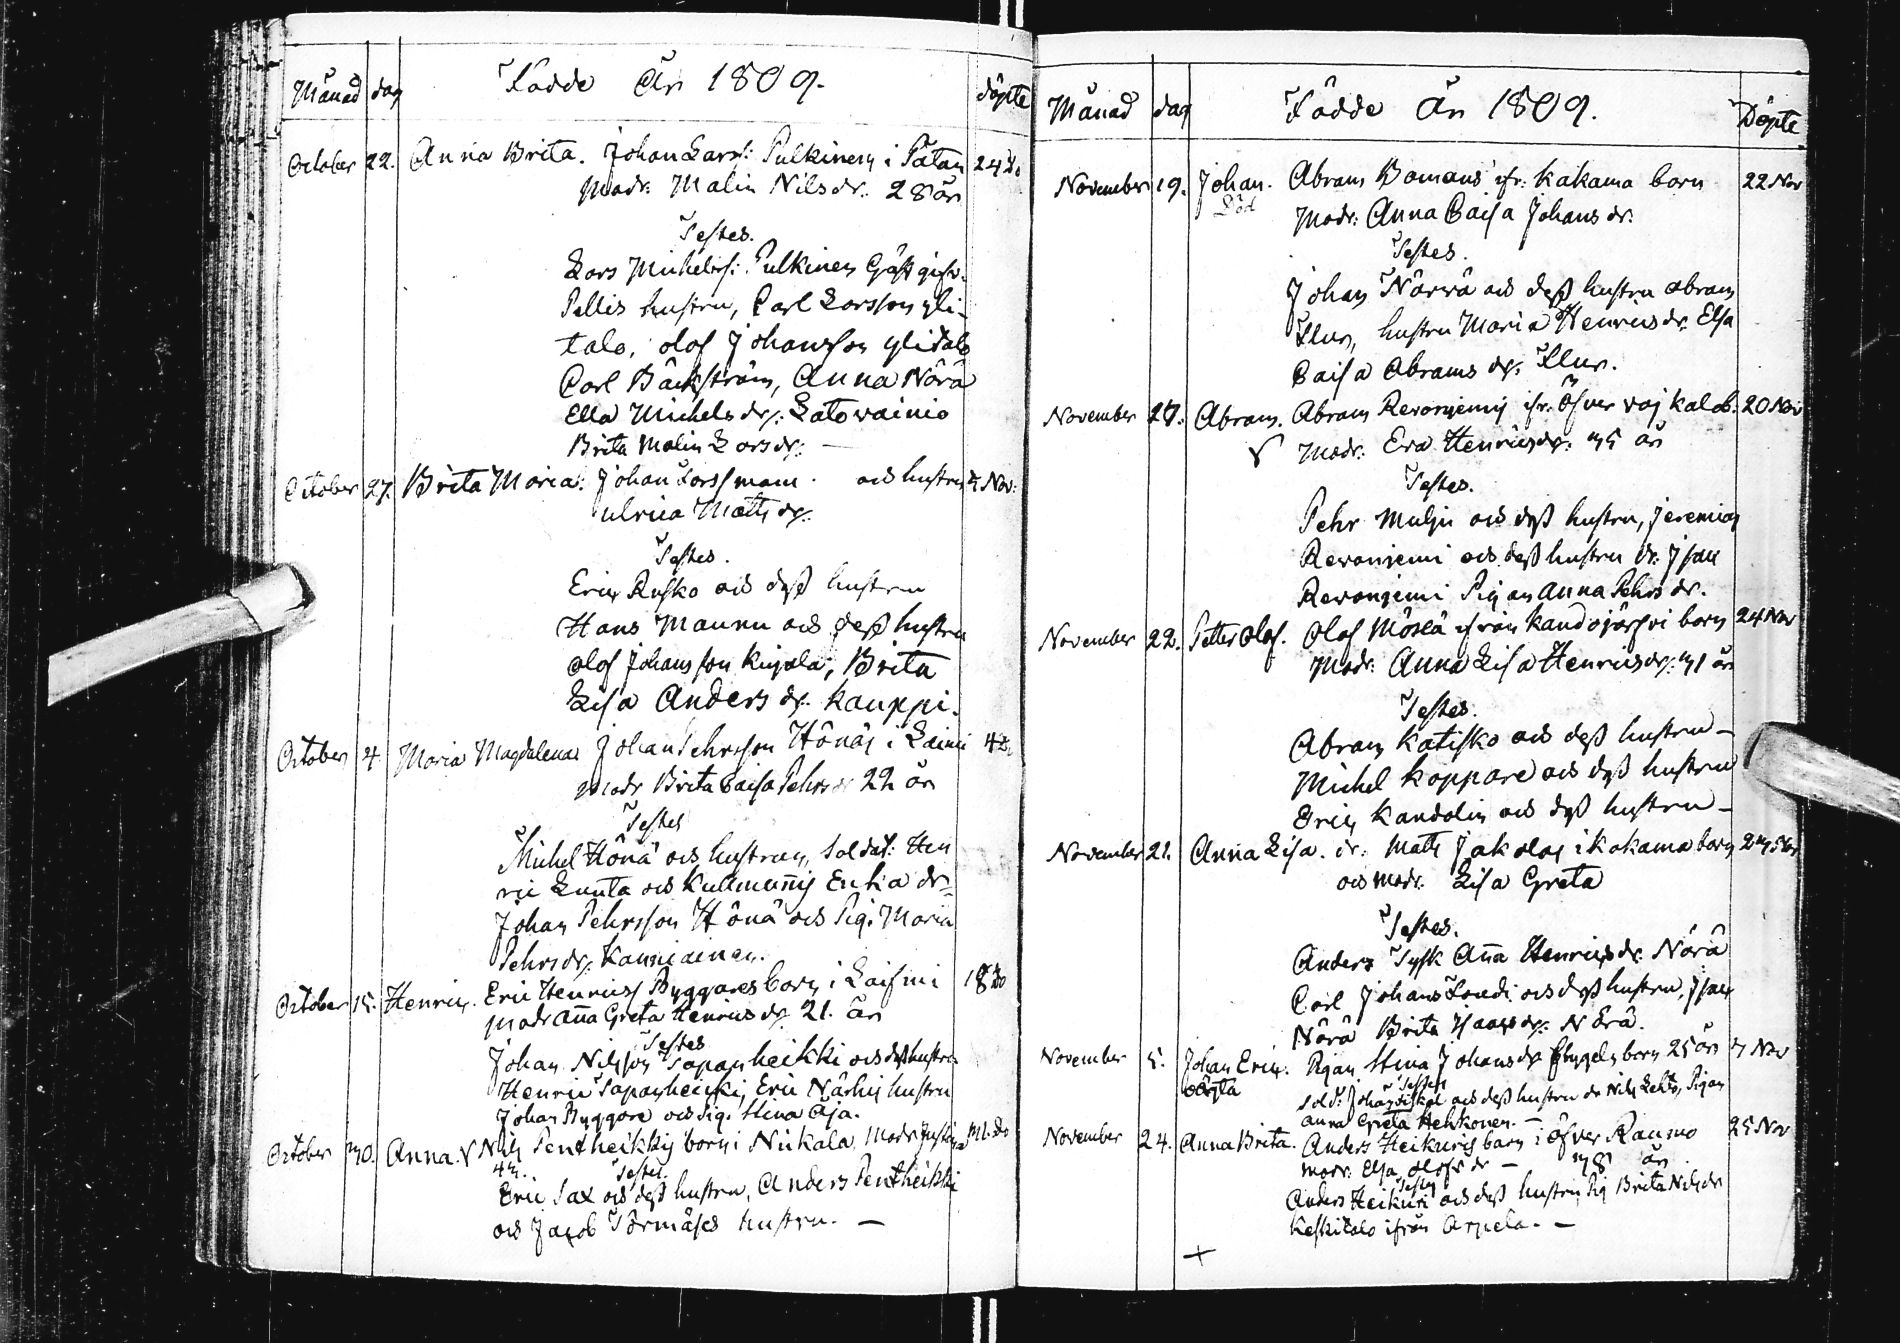 Månad dag Födde År 1809. döpte
October 22. Anna Brita. Johan Larss: Pulkinen i Pätan 24 do
Modr: Malin Nilsdr. 28 år
Testes.
Lars Michelss: Pulkinen Gäst gifv.
Pellis hustru, Carl Larsson yli-
talo, Olof Johansson ylitalo
Carl Bäckström, Anna Närä
Ella Michelsdr: Latovainio
Brita Malin Larsdr: —
October 27. Brita Maria. Johan Lorssman och hustru Nov:
Ulrica Matts dr.
Testes.
Eric Rusko och dess hustru
Hans Maunu och dess hustru
Olof Johansson Kujala, Brita
Lisa Anders dr. Kauppi.
October 4. Maria Magdalena Johan Pehrsson Hönä i
modr Brita Caisa Pehrsdr 22 år
Testes
Michel Hönä och hustrun, Soldat: Hen
ric Lunta och
Johan Pehrsson Hönä och Pig. Maria
Pehrsdr. Kanniainen.
October 15. Henric. Eric Henricss Byggares barn i 18 do
modr Aña Greta Henricsdr. 21. år
Testes
Johan Nilsson Tapanheikki och dess hustru
Henric Tapanheikki Eric Närhis hustru
Johan Byggare och Pig. Stina
October 30. Anna. V Nils Pentheikkis barn i Niikala, Modr 31. do
42.
Testes.
Eric Sax och dess hustru, Anders Pentheikki
och Jacob Törmäses hustru. —
Månad dag Födde År 1809. Döpte
November 19. Johan. Abram Bomans ifr: Kakama barn 22 Nov
Död
Modr: Anna Caisa Johans dr.
Testes.
Johan Närrä och dess hustru Abram
hustru Maria Henricsdr. Elsa
Caisa Abrams dr:
November 27. Abram. Abram Revonjemij ifr. Öfver vojakala b. Nov
V Modr: Eva Henricsdr: 35 år
Testes.
Pehr Muljo och dess hustru, Jeremias
Revonjemi och dess hustru dr. Isac
Revonjemi Pigan Anna Pehrs dr.
November 22. Petter Olof. Olof Möslä ifrån Kandojärfvi barn 24 Nov
Modr. Anna Lisa Henricsdr: 31 år
Testes.
Abram Katisko och dess hustru —
Michel Koppare och dess hustru
Eric Kandolin och dess hustru —
November 21. Anna Lisa. dr: Matts Jakolas i Kakama barn Nov
och modr. Lisa Greta
Testes.
Anders Tysk Aña Henricsdr. Närä
Carl Johans och dess hustru, Isac
Närä Brita Isaacsdr: Närä.
November 5. Johan Eric. Pigan Stina Johansdr barn 25 år 7 Nov
oägta
Testes
Sold: Johan och dess hustru dr Nils Pigan
Anna Greta Hehkonen. —
November 24. Anna Brita. Anders Heikuris barn i Öfver Raumo 25 Nov
modr. Elsa Olofs dr — 38 år
Testes
Anders Heikuri och dess hustru Pig Brita Nilsdr
Keskitalo ifrån Arpela. —
+